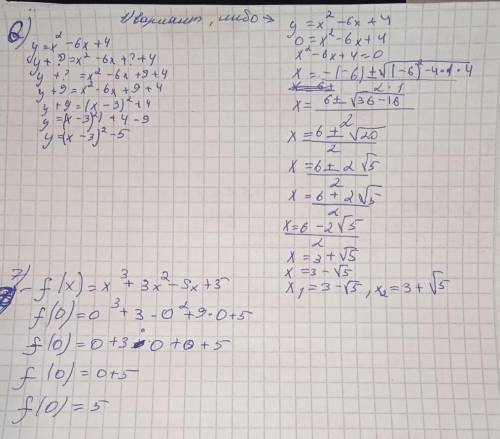 2)
1) вариант, либо →
y = x² - 6x + 4
y + ? = x² - 6x + ? + 4
y + ? = x² - 6x + 9 + 4
y + 9 = x² - 6x + 9 + 4
y + 9 = (x - 3)² + 4
y = (x - 3)² + 4 - 9
y = (x - 3)² - 5
y = x² - 6x + 4
0 = x² - 6x + 4
x² - 6x + 4 = 0
x = -(-6) ± √(-6)² - 4·1·4
2·1
x = 6 ± √36 - 16
2
x = 6 ± √20
2
x = 6 ± 2√5
2
x = 6 + 2√5
2
x = 6 - 2√5
2
x = 3 + √5
x = 3 - √5
x₁ = 3 - √5, x₂ = 3 + √5
7)
f(x) = x³ + 3x² - 5x + 5
f(0) = 0³ + 3 - 0² + 9·0 + 5
f(0) = 0 + 3·0 + 0 + 5
f(0) = 0 + 5
f(0) = 5